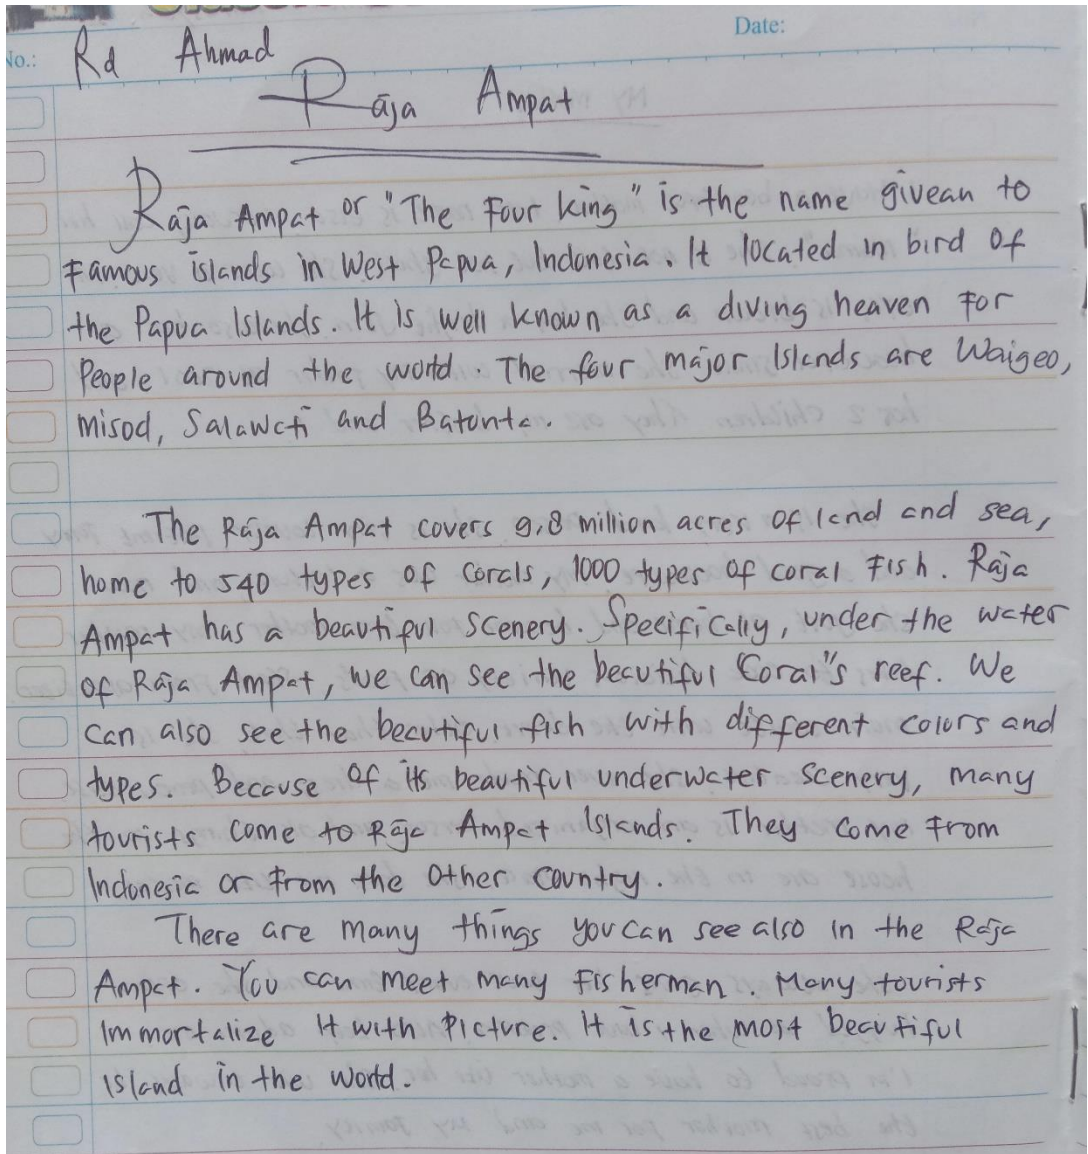 Date:
No.: Rd Ahmad
Raja Ampat
Raja Ampat or "The Four king" is the name givean to
Famous islands in West Papua, Indonesia. It located in bird of
the Papua Islands. It Is well known as a diving heaven For
People around the world. The four major Islands are Waigeo,
misod, Salawati and Batanta.
The Raja Ampat covers 9,8 million acres of land and sea,
home to 540 types of corals, 1000 types of coral Fish. Raja
Ampat has a beautiful scenery. Specifically, under the water
of Raja Ampat, we can see the beautiful Coral"s reef. We
can also see the beautiful fish with different colors and
types. Because of its beautiful underwater scenery, many
tourists come to Raja Ampat Islands. They come from
Indonesia or from the other country.
There are many things you can see also in the Raja
Ampat. You can meet many Fisherman. Many tourists
Immortalize It with Picture. It is the most beautiful
Island in the world.